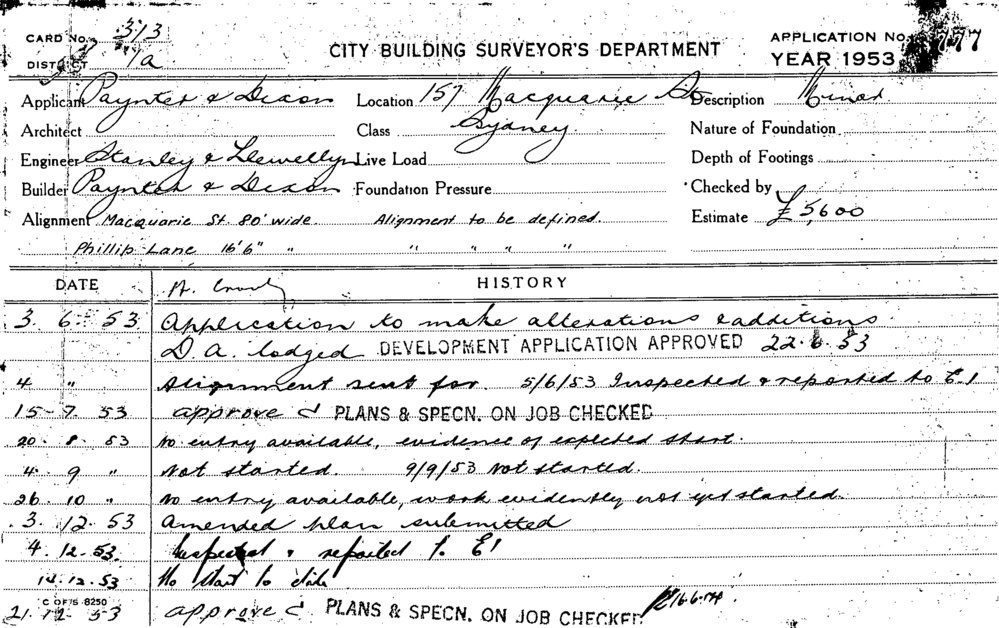 CARD No. 313
DISTRICT 7/a
CITY BUILDING SURVEYOR'S DEPARTMENT
APPLICATION No. 777
YEAR 1953
Applicant Paynter & Dixon Location 157 Macquarie St Description Minor
Architect Class Sydney Nature of Foundation
Engineer Stanley & Llewellyn Live Load Depth of Footings
Builder Paynter & Dixon Foundation Pressure Checked by
Alignment Macquarie St. 80' wide. Alignment to be defined. Estimate £5,600
Phillip Lane 16'6" " " " " "
DATE HISTORY
3. 6. 53 Application to make alterations & additions
D.A. lodged DEVELOPMENT APPLICATION APPROVED 22.6.53
4 " Alignment sent for. 5/6/53 Inspected & reported to E.1
15-7.53 approved PLANS & SPECN. ON JOB CHECKED
20.8.53 No entry available, evidence of expected start.
4. 9 " Not started. 9/9/53 Not started.
26.10 " No entry available, work evidently not yet started.
3.12.53 Amended plan submitted
4.12.53. Inspected & reported to E1
12.53 No start to date
C OF S 8250
21.12.53 approved PLANS & SPECN. ON JOB CHECKED 16.6.54